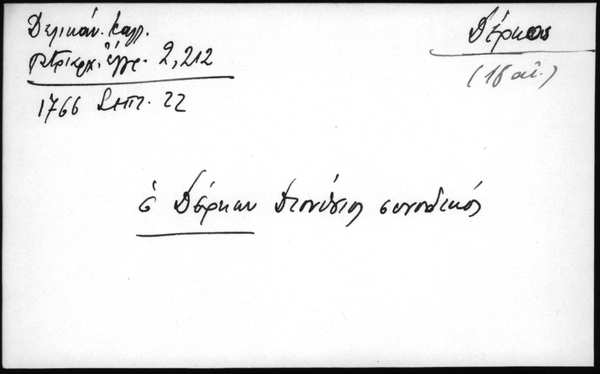 Δελικάν. Καλλ.
Πατριαρχ. ἔγγρ. 2, 212
1766 Σεπτ. 22
Δέρκος
(18 αἰ.)
ὁ Δέρκων Διονύσιος συνοδικός